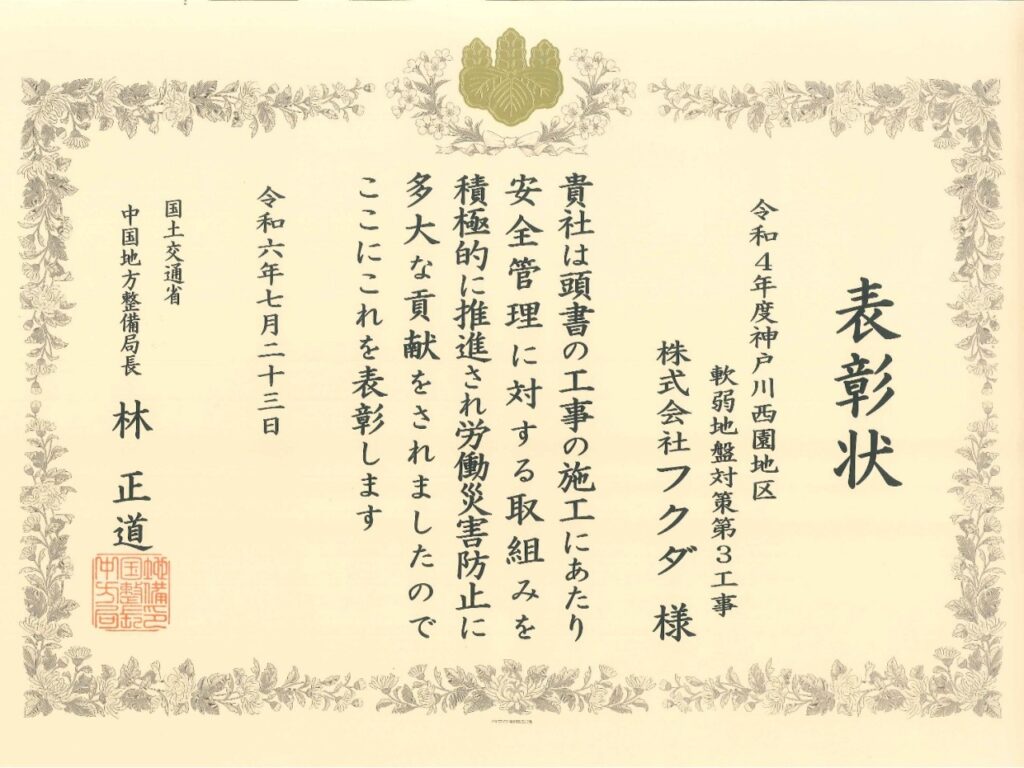 表彰状
令和４年度神戸川西園地区
軟弱地盤対策第３工事
株式会社フクダ 様
貴社は頭書の工事の施工にあたり
安全管理に対する取組みを
積極的に推進され労働災害防止に
多大な貢献をされましたので
ここにこれを表彰します
令和六年七月二十三日
国土交通省
中国地方整備局長 林 正道